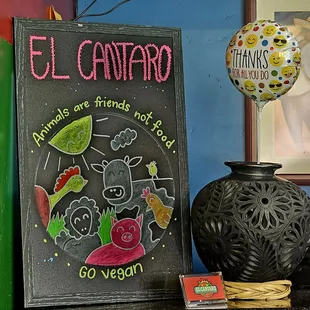 EL CANTARO
Animals are friends not food.
GO VEGAN
THANKS
FOR ALL YOU DO